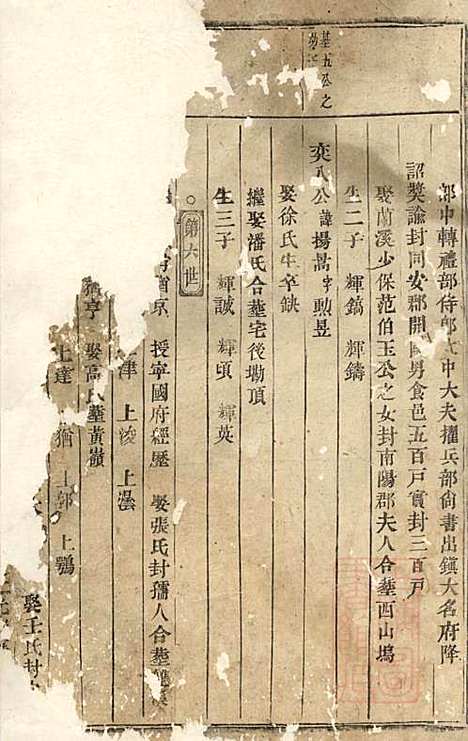 部中轉禮部侍郎太中大夫擢兵部尚書出鎮大名府降
詔獎諭封同安郡開國男食邑五百戶實封三百戶
娶蘭溪少保范伯玉公之女封南陽郡夫人合塟西山塢
生二子 輝鎬 輝鑄
基五公之
奕八公諱揚字勲昱
娶徐氏生卒缺
繼娶潘氏合塟宅後塢頂
生三子 輝誠 輝頃 輝英
第六世
授寧國府經歷 娶張氏封孺人合塟
津 上淩 上瀠
娶高氏塟黃嶺
上達 上猶 上郭 上鶚
娶王氏封